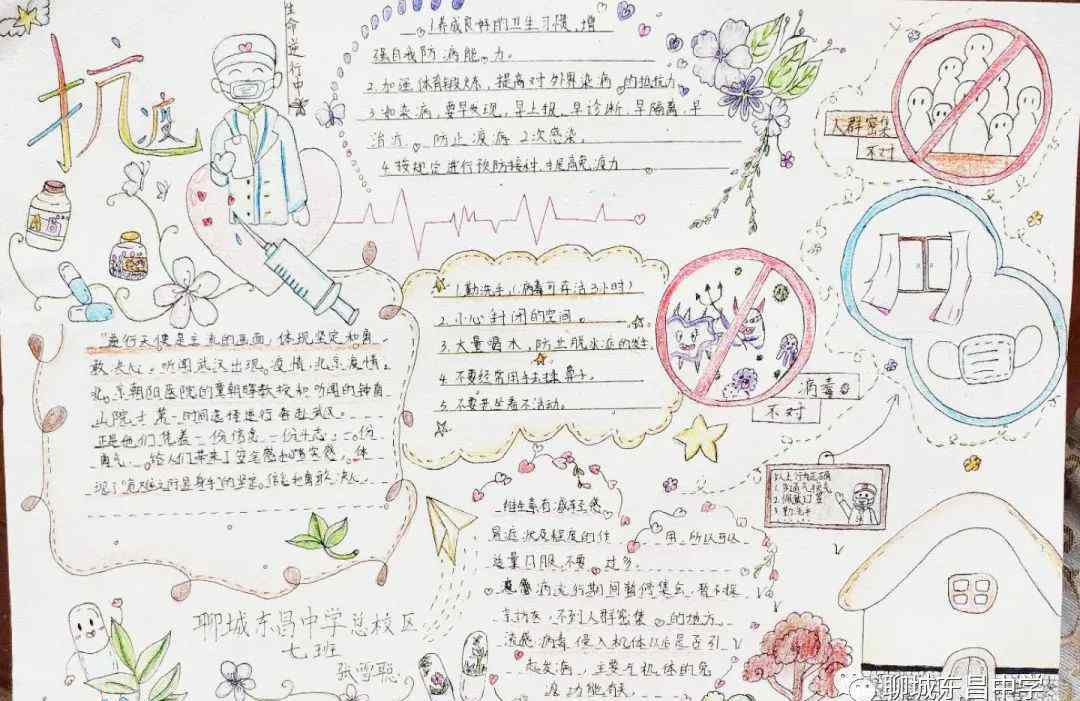 抗
疫
生命逆行中
1.养成良好的卫生习惯,增
强自我防病能力。
2.加强体育锻炼,提高对外界染病的抵抗力
3.如染病,要早发现,早上报,早诊断,早隔离,早
治疗。防止疫病2次感染。
4.按规定进行预防接种,提高免疫力
人群密集
不对
1.勤洗手,(病毒可存活3小时)
2.小心封闭的空间。
3.大量喝水,防止脱水症的发生
4.不要经常用手去抹鼻子。
5.不要老坐着不活动。
病毒
不对
敢决心。听闻武汉出现疫情,北京疫情。
北京朝阳医院的童朝晖教授和听闻的钟南
山院士第一时间选择逆行奔赴武汉。
正是他们凭着一份信念,一份斗志,一份
勇气,给人们带来了安全感和踏实感,体
维生素有减轻感
冒症状及程度的作用,所以可以
适量口服,不要过多。
流感病流行期间暂停集会,暂不探
亲访友,不到人群密集的地方。
流感病毒侵入机体以后是否引
起发病,主要与机体的免
疫功能有关
聊城东昌中学总校区
七班
张雪聪
聊城东昌中学